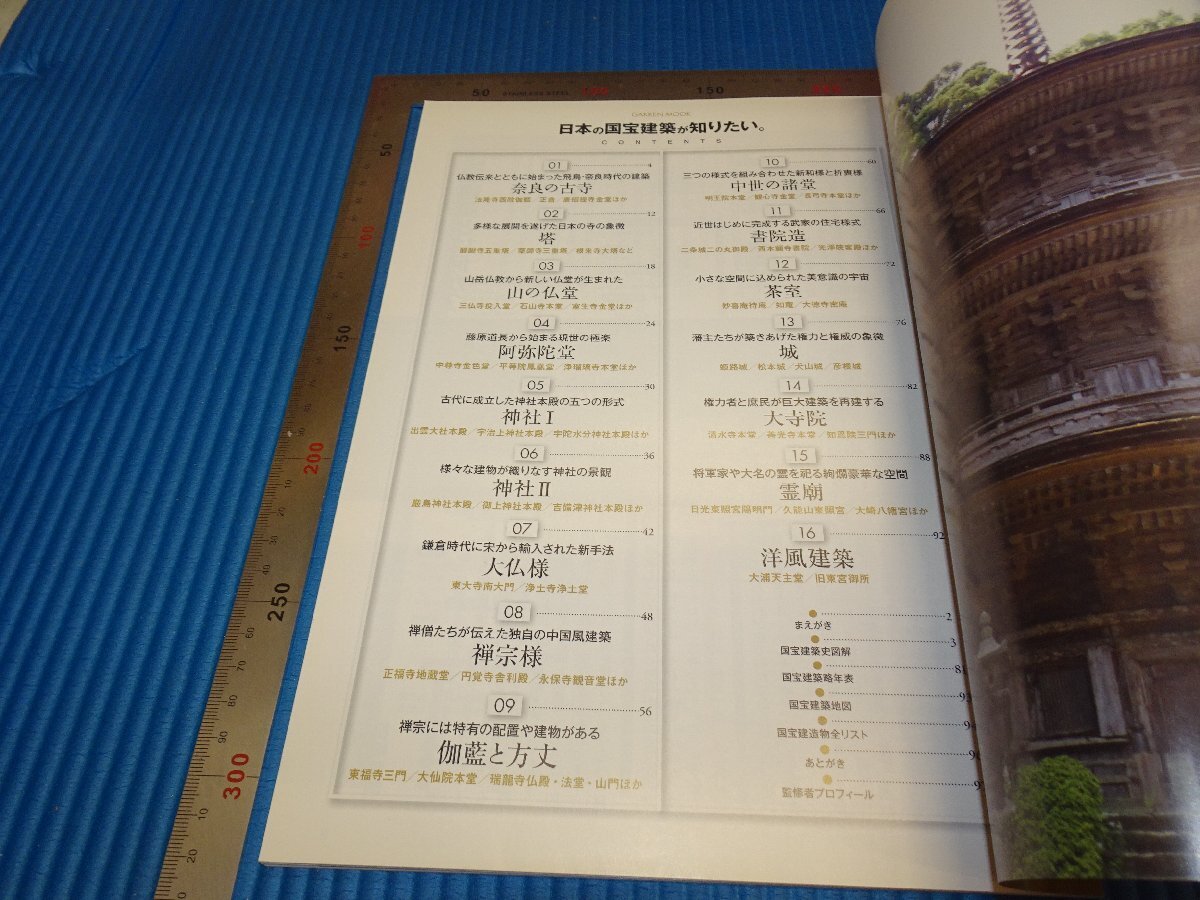 GAKKEN MOOK
日本の国宝建築が知りたい。
CONTENTS
01 4
仏教伝来とともに始まった飛鳥・奈良時代の建築
奈良の古寺
法隆寺西院伽藍/正倉/唐招提寺金堂ほか
02 12
多様な展開を遂げた日本の寺の象徴
塔
醍醐寺五重塔/薬師寺三重塔/根来寺大塔など
03 18
山岳仏教から新しい仏堂が生まれた
山の仏堂
三仏寺投入堂/石山寺本堂/室生寺金堂ほか
04 24
藤原道長から始まる現世の極楽
阿弥陀堂
中尊寺金色堂/平等院鳳凰堂/浄瑠璃寺本堂ほか
05 30
古代に成立した神社本殿の五つの形式
神社Ⅰ
出雲大社本殿/宇治上神社本殿/宇陀水分神社本殿ほか
06 36
様々な建物が織りなす神社の景観
神社Ⅱ
厳島神社本殿/御上神社本殿/吉備津神社本殿ほか
07 42
鎌倉時代に宋から輸入された新手法
大仏様
東大寺南大門/浄土寺浄土堂
08 48
禅僧たちが伝えた独自の中国風建築
禅宗様
正福寺地蔵堂/円覚寺舎利殿/永保寺観音堂ほか
09 56
禅宗には特有の配置や建物がある
伽藍と方丈
東福寺三門/大仙院本堂/瑞龍寺仏殿・法堂・山門ほか
10 60
三つの様式を組み合わせた新和様と折衷様
中世の諸堂
明王院本堂/観心寺金堂/長弓寺本堂ほか
11 66
近世はじめに完成する武家の住宅様式
書院造
二条城二の丸御殿/西本願寺書院/光浄院客殿ほか
12 72
小さな空間に込められた美意識の宇宙
茶室
妙喜庵待庵/如庵/大徳寺密庵
13 76
藩主たちが築きあげた権力と権威の象徴
城
姫路城/松本城/犬山城/彦根城
14 82
権力者と庶民が巨大建築を再建する
大寺院
清水寺本堂/善光寺本堂/知恩院三門ほか
15 88
将軍家や大名の霊を祀る絢爛豪華な空間
霊廟
日光東照宮陽明門/久能山東照宮/大崎八幡宮ほか
16 92
洋風建築
大浦天主堂/旧東宮御所
2
まえがき
3
国宝建築史図解
国宝建築略年表
国宝建築地図
国宝建造物全リスト
あとがき
監修者プロフィール
50 STAINLESS STEEL 100 150 200
50
100
150
200
250
300